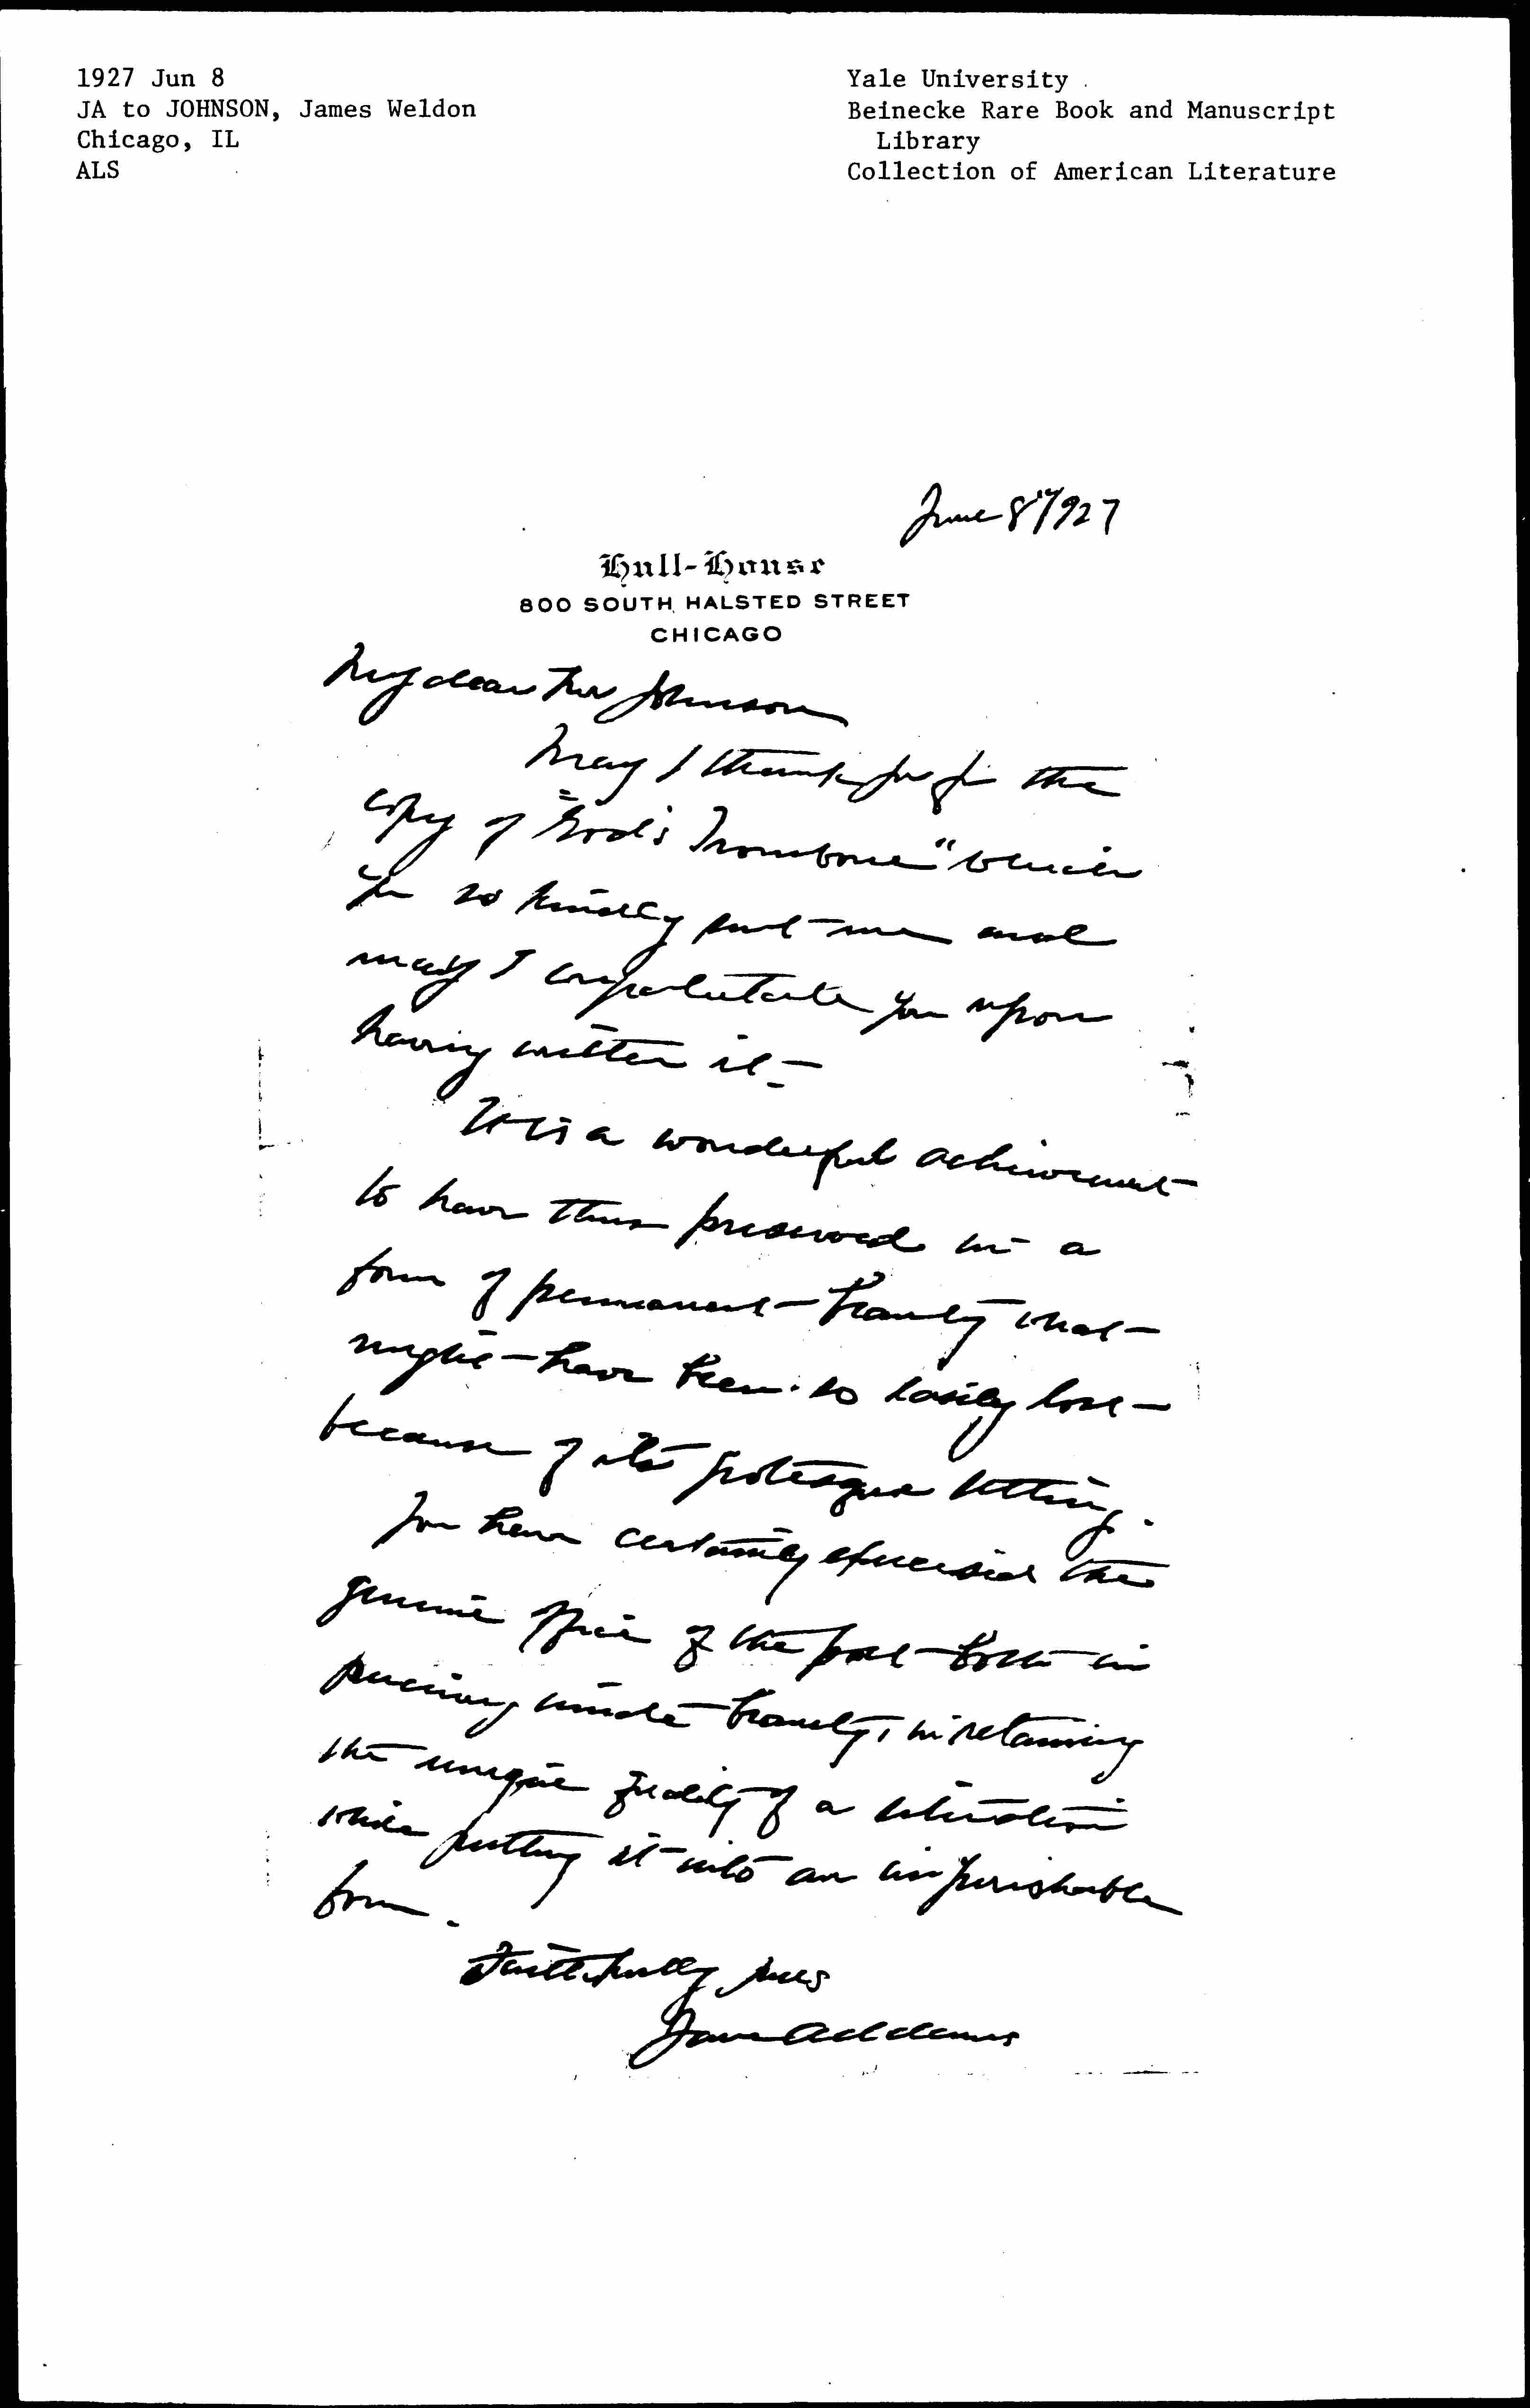 1927 Jun 8
JA to JOHNSON, James Weldon
Chicago, IL
ALS
Yale University
Beinecke Rare Book and Manuscript
Library
Collection of American Literature
June 8" 1927
Hull-House
800 SOUTH HALSTED STREET
CHICAGO
My dear Mr Johnson
May I thank you for the
copy of "God's Trombone" which
you so kindly sent me and
may I congratulate you upon
having written it—
It is a wonderful achievement
to have thus preserved in a
form of permanent beauty what
might have been so easily lost
because of its grotesque setting.
You have certainly exercised the
genuine office of the poet both in
piercing under beauty, in retaining
the unique quality of a situation
while putting it into an imperishable
form.
Faithfully yours
Jane Addams